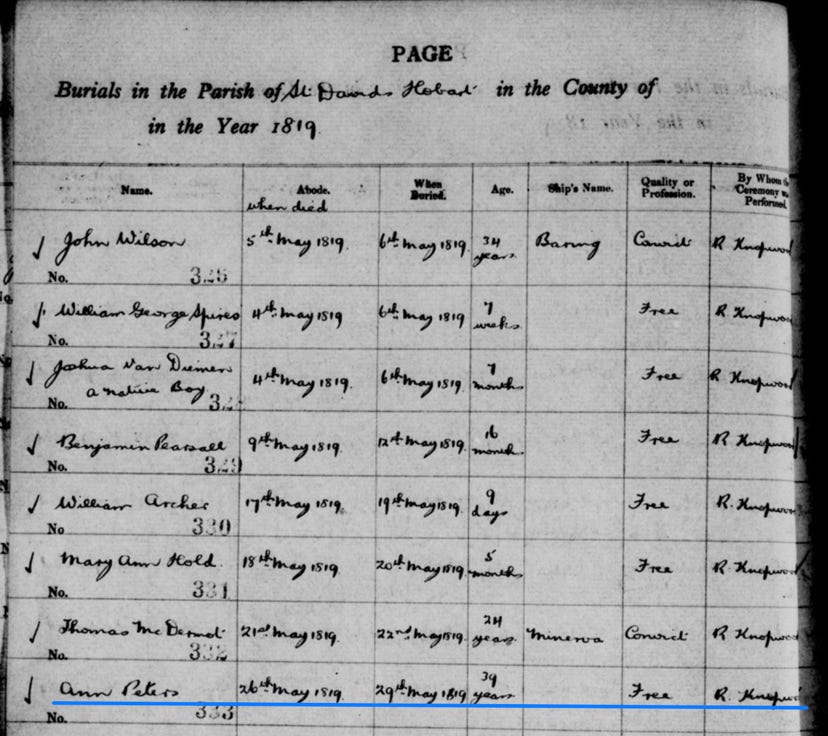 PAGE
Burials in the Parish of St Davids Hobart in the County of
in the Year 1819
Name. Abode. When Buried. Age. Ship's Name. Quality or Profession. By Whom Ceremony Performed.
when died
John Wilson 5th May 1819. 6th May 1819 34 years Baring Convict R Knopwood
No. 326
William George Spires 4th May 1819 6th May 1819 7 weeks Free R Knopwood
No. 327
Joshua Van Diemen 4th May 1819. 6th May 1819. 7 months Free R Knopwood
a native Boy
No. 32
Benjamin Pearsall 9th May 1819. 12th May 1819. 16 month Free R Knopwood
No. 329
William Archer 17th May 1819. 19th May 1819. 9 days Free R. Knopwood
No 330
Mary Ann Hold. 18th May 1819. 20th May 1819. 5 months Free R. Knopwood
No. 331
Thomas McDermot 21st May 1819. 22nd May 1819. 24 years Minerva Convict R Knopwood
No. 332
Ann Peters 26th May 1819. 29th May 1819 39 years Free R. Knopwo
No. 333